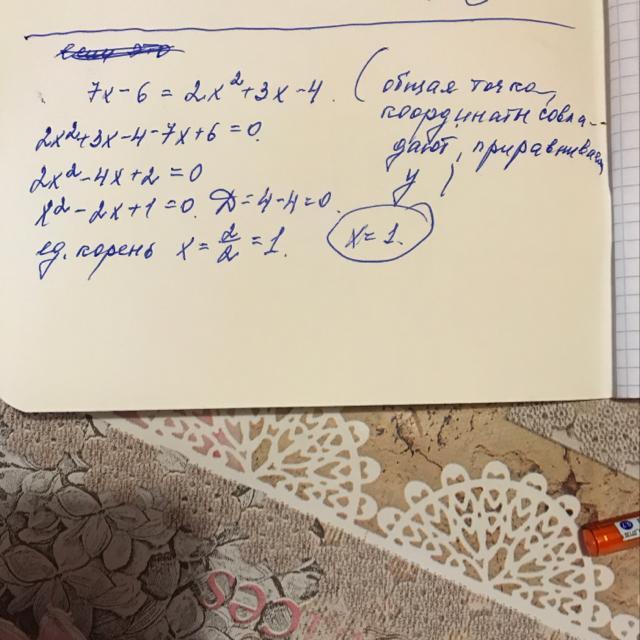 7x-6 = 2x²+3x-4. (общая точка,
координаты совпа-
дают, приравниваем
y)
2x²+3x-4-7x+6=0.
2x²-4x+2=0
x²-2x+1=0. D=4-4=0.
ед. корень x = 2/2 = 1. x=1.